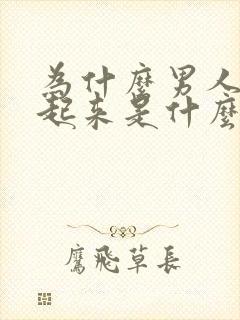 为什麼男人
起来是什麼
鷹飛草長